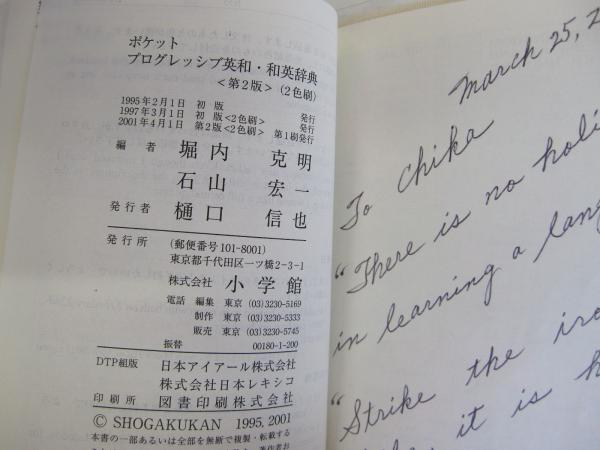 ポケット
プログレッシブ英和・和英辞典
<第2版>(2色刷)
1995年2月1日 初 版 発行
1997年3月1日 初版<2色刷> 発行
2001年4月1日 第2版<2色刷> 第1刷発行
編 者 堀内 克明
石山 宏一
発行者 樋口 信也
発行所 (郵便番号101-8001)
東京都千代田区一ツ橋2-3-1
株式会社 小学館
電話 編集 東京 (03)3230-5169
制作 東京 (03)3230-5333
販売 東京 (03)3230-5745
振替 00180-1-200
DTP組版 日本アイアール株式会社
株式会社日本レキシコ
印刷所 図書印刷株式会社
© SHOGAKUKAN 1995, 2001
本書の一部あるいは全部を無断で複製・転載する
March 25, 2
To Chika
"There is no holi
in learning a lang
"Strike the iro
it is h